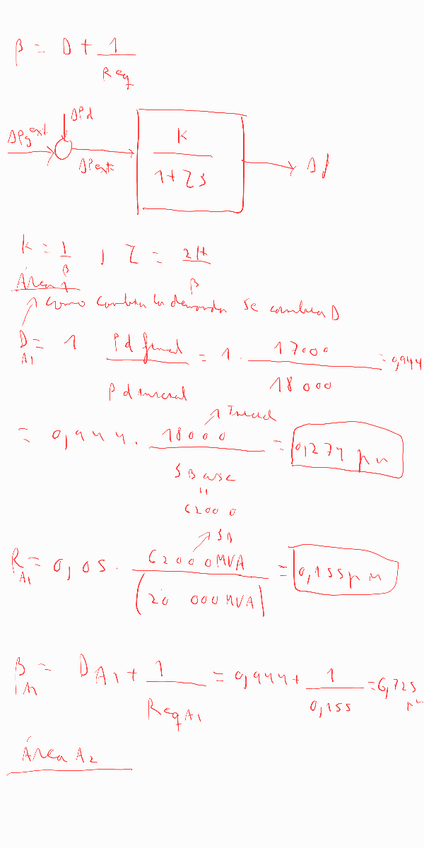 β = D + 1/Req
ΔPd
ΔPg ext
ΔPext
K/(1+Zs)
Δf
K = 1/β , Z = 2H/β
Área 1
como cambia la demanda se cambia D
D A1 = 1 Pd final/Pd inicial = 1 · 17000/18000 = 0,944
= 0,944 · 18000/S Base = 0,274 pu
Inicial
"
62000
SB
R A1 = 0,05 · 62000MVA/(20 000MVA) = 0,155 pu
β 1A1 = D A1 + 1/Req A1 = 0,944 + 1/0,155 = 6,725 pu
Área A2